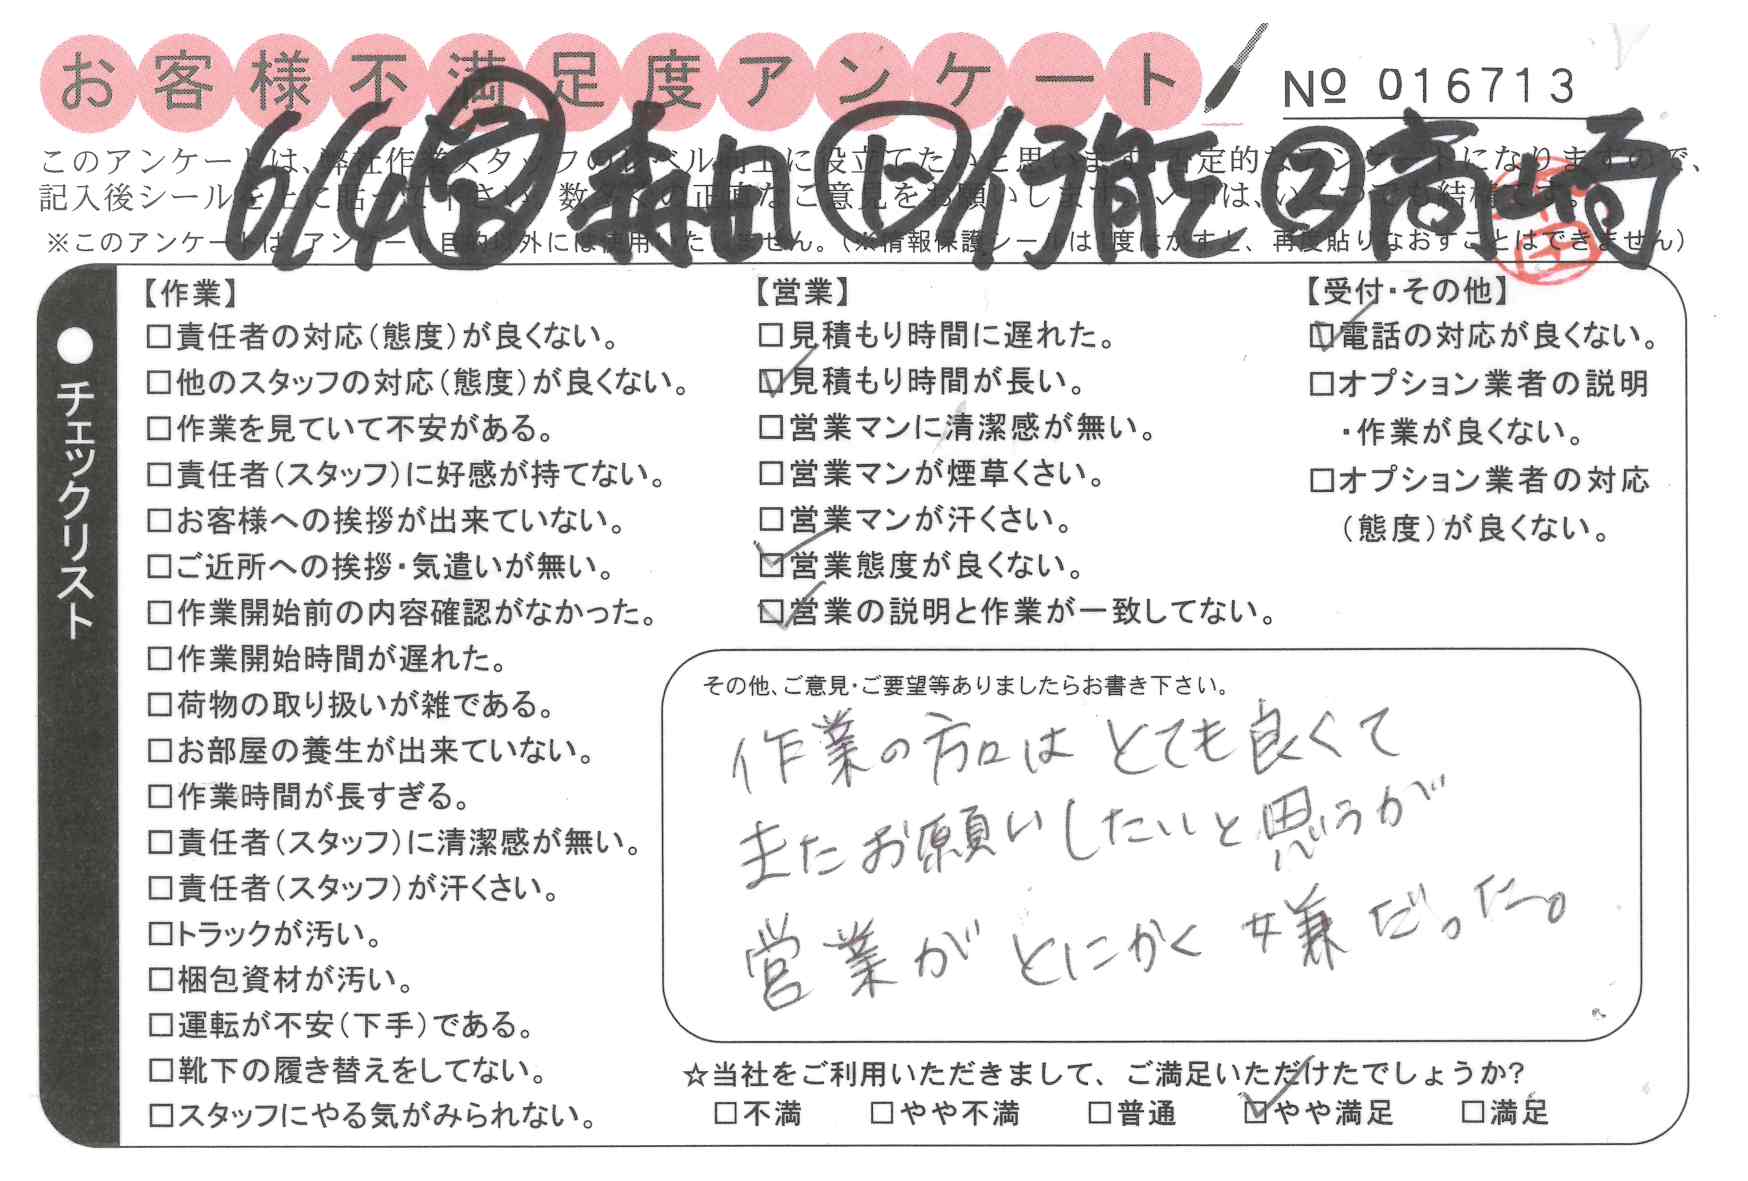 お客様不満足度アンケート
№ 016713
6/4 森田 ① 高崎 ②
このアンケートは、弊社作業スタッフのレベル向上に役立てたいと思います。否定的なアンケートになりますので、
記入後シールを上に貼って下さい。数多くの正直なご意見をお願いします。✓印は、いくつでも結構です。
※このアンケートは、アンケート目的以外には使用いたしません。（※情報保護シールは1度はがすと、再度貼りなおすことはできません）
●チェックリスト
【作業】
□責任者の対応（態度）が良くない。
□他のスタッフの対応（態度）が良くない。
□作業を見ていて不安がある。
□責任者（スタッフ）に好感が持てない。
□お客様への挨拶が出来ていない。
□ご近所への挨拶・気遣いが無い。
□作業開始前の内容確認がなかった。
□作業開始時間が遅れた。
□荷物の取り扱いが雑である。
□お部屋の養生が出来ていない。
□作業時間が長すぎる。
□責任者（スタッフ）に清潔感が無い。
□責任者（スタッフ）が汗くさい。
□トラックが汚い。
□梱包資材が汚い。
□運転が不安（下手）である。
□靴下の履き替えをしてない。
□スタッフにやる気がみられない。
【営業】
□見積もり時間に遅れた。
☑見積もり時間が長い。
□営業マンに清潔感が無い。
□営業マンが煙草くさい。
□営業マンが汗くさい。
☑営業態度が良くない。
☑営業の説明と作業が一致してない。
【受付・その他】
☑電話の対応が良くない。
□オプション業者の説明
・作業が良くない。
□オプション業者の対応
（態度）が良くない。
その他、ご意見・ご要望等ありましたらお書き下さい。
作業の方々はとても良くて
またお願いしたいと思うが
営業がとにかく嫌だった。
☆当社をご利用いただきまして、ご満足いただけたでしょうか?
□不満 □やや不満 □普通 ☑やや満足 □満足